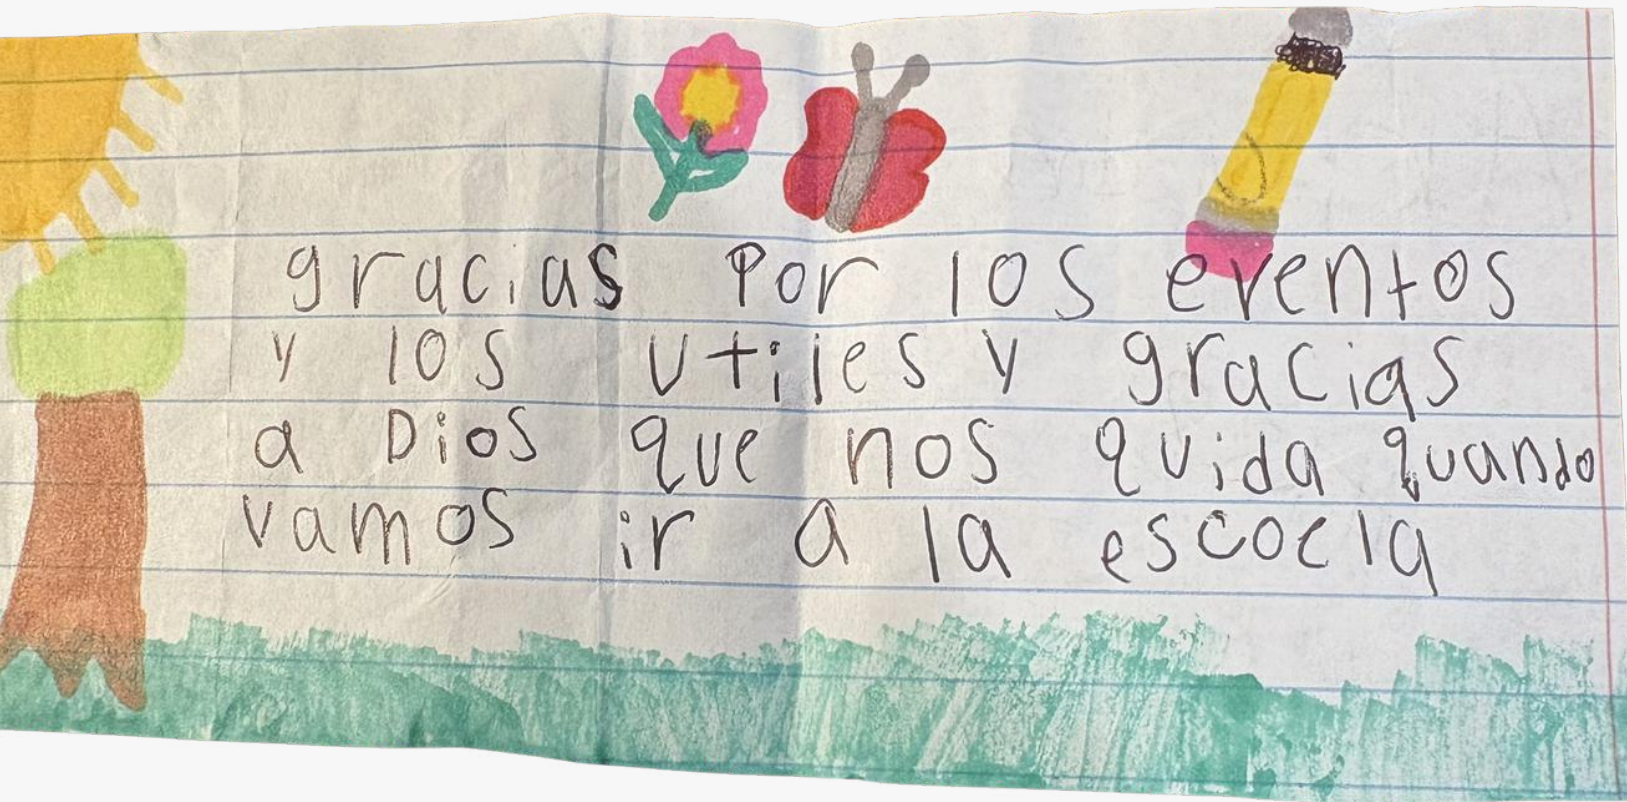 gracias Por los eventos
y los utiles y gracias
a Dios que nos quida quando
vamos ir a la escoela